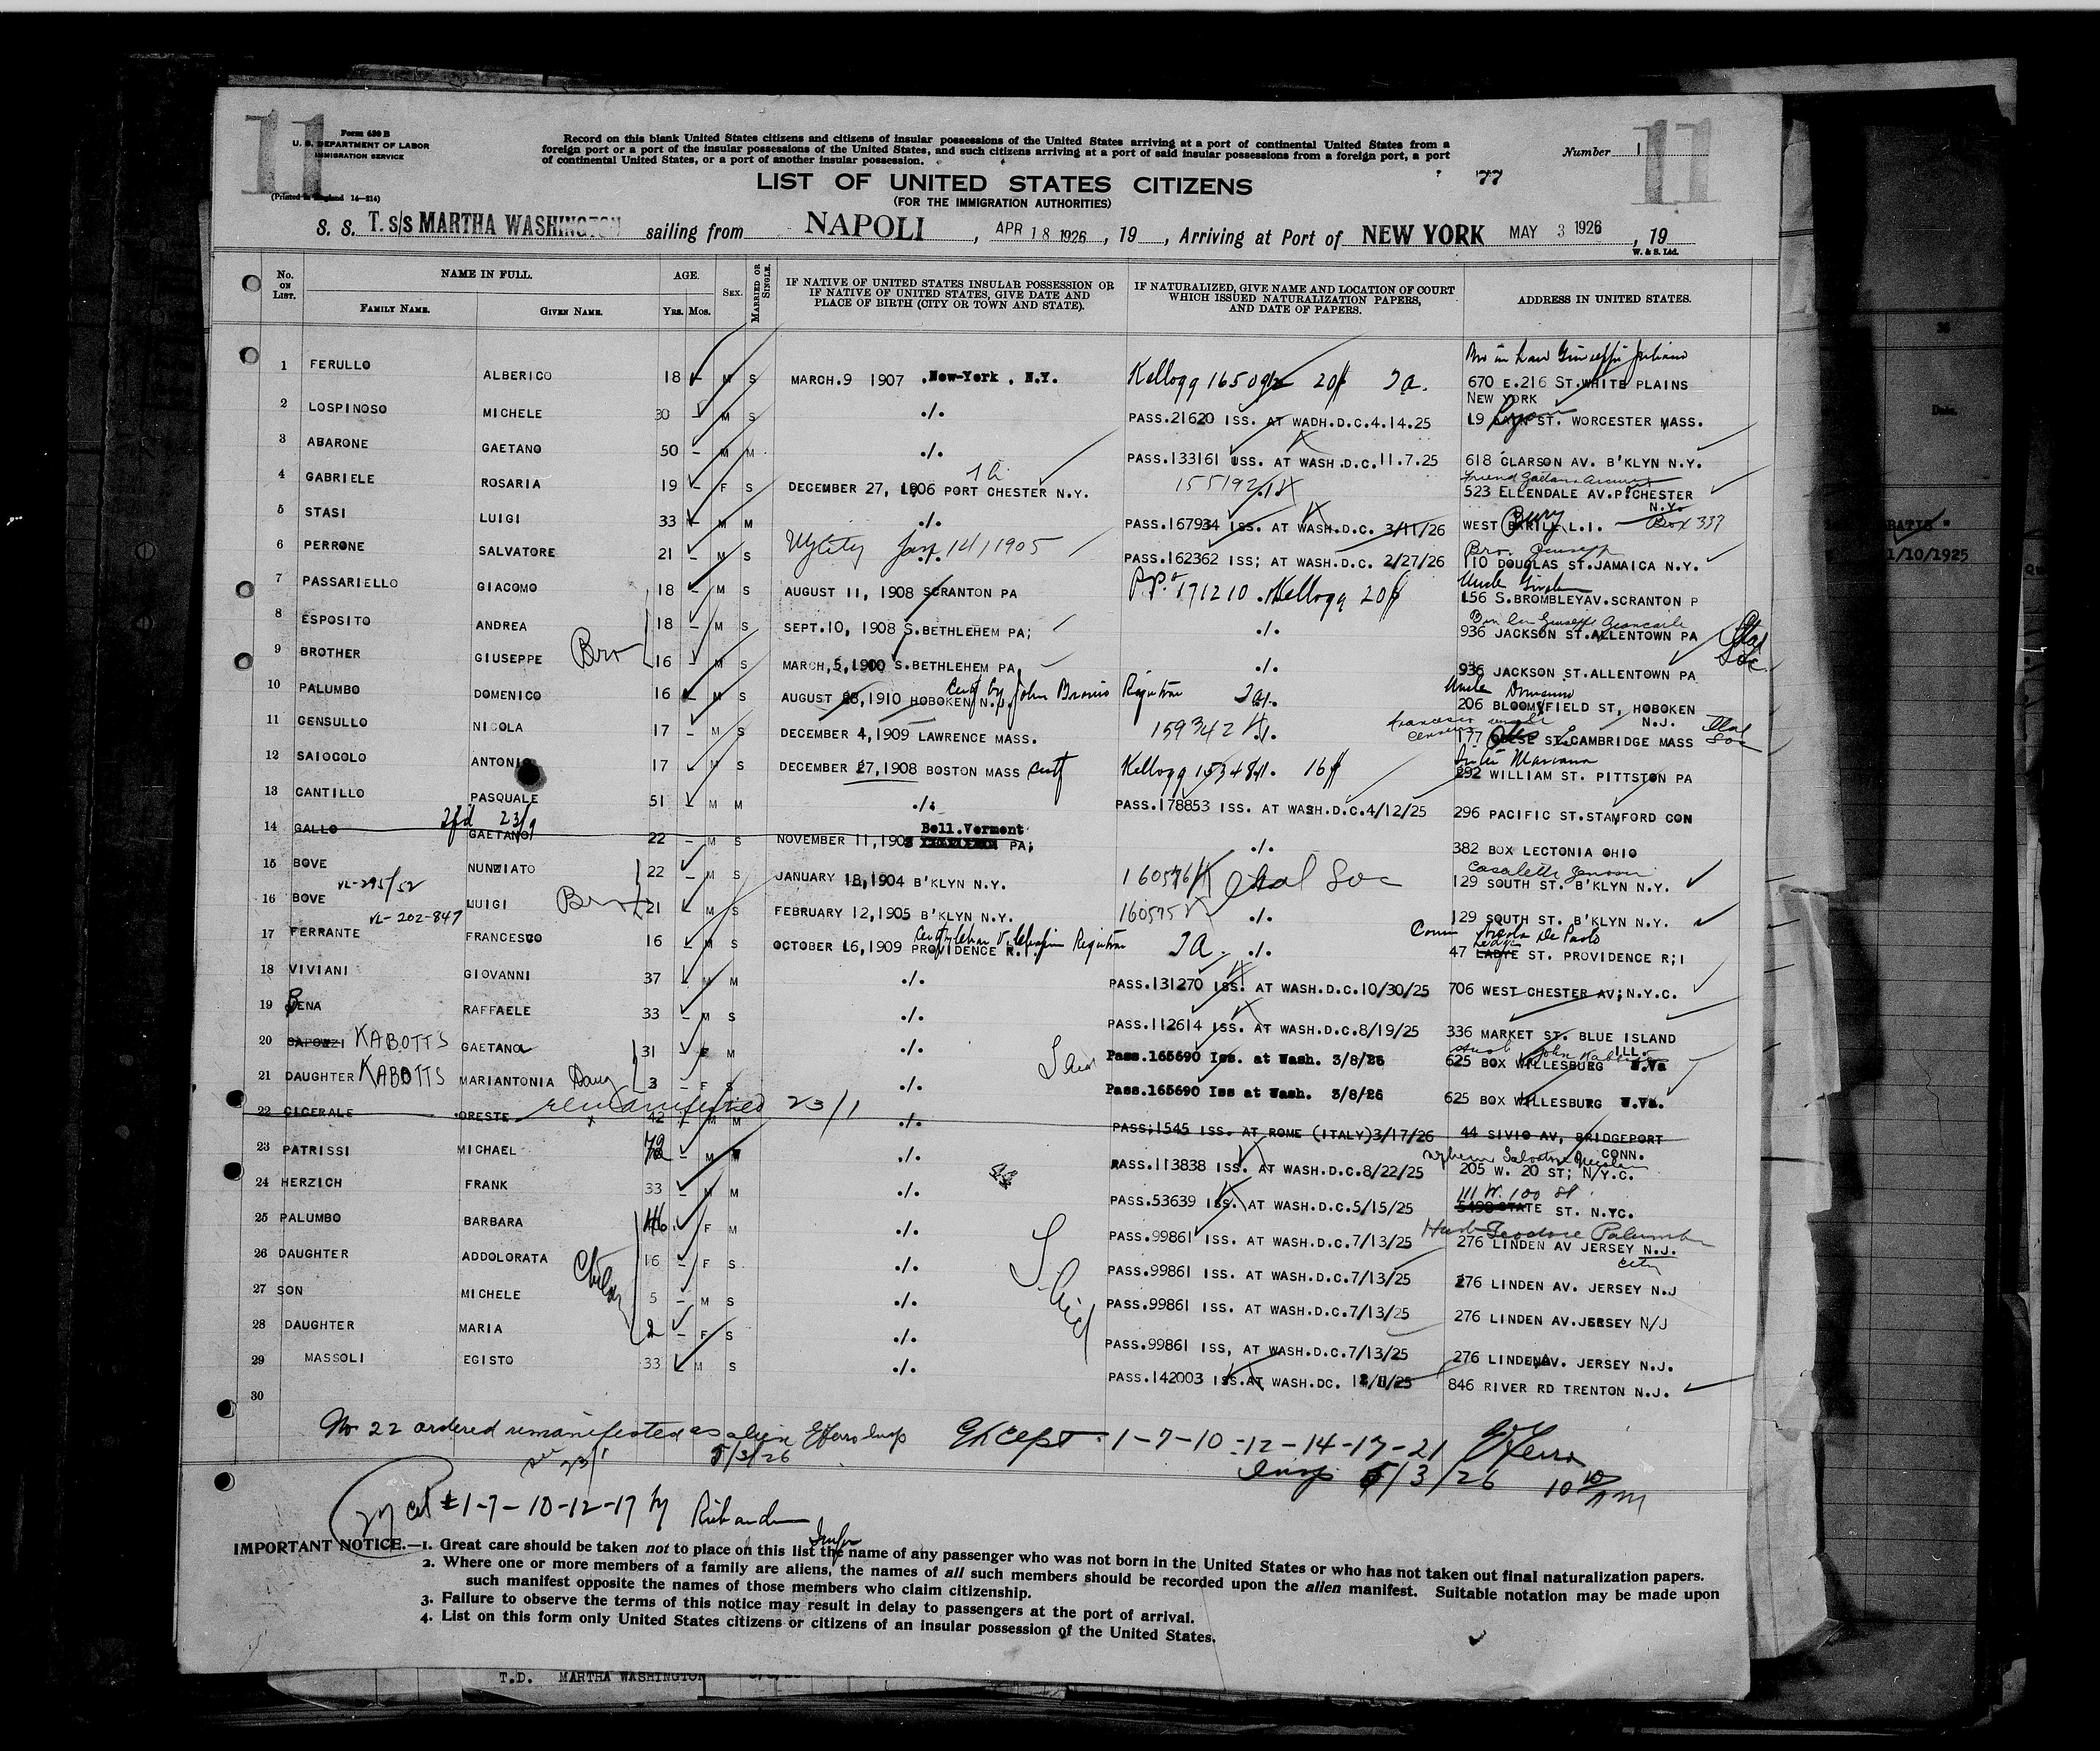 11
Form 630 B
U. S. DEPARTMENT OF LABOR
IMMIGRATION SERVICE
(Printed in England 14—214)
Record on this blank United States citizens and citizens of insular possessions of the United States arriving at a port of continental United States from a
foreign port or a port of the insular possessions of the United States, and such citizens arriving at a port of said insular possessions from a foreign port, a port
of continental United States, or a port of another insular possession.
Number 1
11
LIST OF UNITED STATES CITIZENS
77
(FOR THE IMMIGRATION AUTHORITIES)
S. S. T. s/s MARTHA WASHINGTON sailing from NAPOLI, APR 18 1926, 19, Arriving at Port of NEW YORK MAY 3 1926, 19
W. & S. Ltd.
No. ON LIST. NAME IN FULL. FAMILY NAME. GIVEN NAME. AGE. YRS. MOS. SEX. MARRIED OR SINGLE. IF NATIVE OF UNITED STATES INSULAR POSSESSION OR IF NATIVE OF UNITED STATES, GIVE DATE AND PLACE OF BIRTH (CITY OR TOWN AND STATE). IF NATURALIZED, GIVE NAME AND LOCATION OF COURT WHICH ISSUED NATURALIZATION PAPERS, AND DATE OF PAPERS. ADDRESS IN UNITED STATES.
Bro in Law Giuseppe Juliano
1 FERULLO ALBERICO 18 – M S MARCH.9 1907 .New-York . N.Y. Kellogg 670 E.216 ST.WHITE PLAINS
NEW YORK
2 LOSPINOSO MICHELE 30 – M S ./. PASS.21620 ISS. AT WADH.D.C.4.14.25 19 ST. WORCESTER MASS.
3 ABARONE GAETANO 50 – M M ./. PASS.133161 USS. AT WASH.D.C.11.7.25 618 CLARSON AV. B'KLYN N.Y.
4 GABRIELE ROSARIA 19 – F S DECEMBER 27, 1906 PORT CHESTER N.Y. 155192 ./. 523 ELLENDALE AV.P.CHESTER
N.Y.
5 STASI LUIGI 33 – M M ./. PASS.167934 ISS. AT WASH.D.C. 3/11/26 WEST BARILE L.I. Box 337
6 PERRONE SALVATORE 21 – M S NYCity Jany 14/1905 PASS.162362 ISS; AT WASH.D.C. 2/27/26 Bro. Giuseppe 110 DOUGLAS ST.JAMAICA N.Y.
7 PASSARIELLO GIACOMO 18 – M S AUGUST 11, 1908 SCRANTON PA P.P. 171210 . Kellogg Uncle 156 S.BROMBLEYAV.SCRANTON P
8 ESPOSITO ANDREA 18 – M S SEPT.10, 1908 S.BETHLEHEM PA; ./. 936 JACKSON ST.ALLENTOWN PA Ital Soc
9 BROTHER GIUSEPPE Bro 16 – M S MARCH,5,1910 S.BETHLEHEM PA, ./. 936 JACKSON ST.ALLENTOWN PA
10 PALUMBO DOMENICO 16 – M S AUGUST 28,1910 HOBOKEN N.J. Cert by John Registrar Uncle Domenico 206 BLOOMYFIELD ST, HOBOKEN
N.J.
11 CENSULLO NICOLA 17 – M S DECEMBER 4,1909 LAWRENCE MASS. 159342 ./. 177 ST.CAMBRIDGE MASS Ital Soc
12 SAIOCOLO ANTONIO 17 – M S DECEMBER 27,1908 BOSTON MASS Cert Kellogg Sister Mariana 292 WILLIAM ST. PITTSTON PA
13 CANTILLO PASQUALE 51 – M M ./. PASS.178853 ISS. AT WASH.D.C.4/12/25 296 PACIFIC ST.STAMFORD CON
23/9
14 GALLO GAETANO 22 – M S NOVEMBER 11,1903 Bell.Vermont PA; ./. 382 BOX LECTONIA OHIO
15 BOVE NUNZIATO 22 – M S JANUARY 18,1904 B'KLYN N.Y. 160576 Ital Soc 129 SOUTH ST. B'KLYN N.Y.
VL-295/52
16 BOVE LUIGI Bro 21 – M S FEBRUARY 12,1905 B'KLYN N.Y. 160575 ./. 129 SOUTH ST. B'KLYN N.Y.
VL-202-847
17 FERRANTE FRANCESCO 16 – M S OCTOBER 16,1909 PROVIDENCE R.I. Registrar ./. Cousin Nicola De Paolo 47 LADYE ST. PROVIDENCE R;I
18 VIVIANI GIOVANNI 37 – M M ./. PASS.131270 ISS. AT WASH.D.C.10/30/25 706 WEST CHESTER AV;N.Y.C.
19 BENA RAFFAELE 33 – M S ./. PASS.112614 ISS. AT WASH.D.C.8/19/25 336 MARKET ST. BLUE ISLAND
ILL.
20 CAPOZZI KABOTTS GAETANA 31 F M ./. Pass.165690 Iss. at Wash. 3/8/26 625 BOX WILLESBURG W.Va
21 DAUGHTER KABOTTS MARIANTONIA Daug 3 – F S ./. Pass.165690 Iss at Wash. 3/8/26 625 BOX WILLESBURG W.Va.
22 CICERALE ORESTE remanifested 23/1 42 – M M ./. PASS;1545 ISS. AT ROME (ITALY)3/17/26 44 SIVIO AV, BRIDGEPORT
CONN.
23 PATRISSI MICHAEL – M ./. PASS.113838 ISS. AT WASH.D.C.8/22/25 205 W. 20 ST; N/Y.C.
24 HERZICH FRANK 33 – M M ./. PASS.53639 ISS. AT WASH.D.C.5/15/25 111 W. 100 St 5498 STATE ST. N.YC.
25 PALUMBO BARBARA 46 F M ./. PASS.99861 ISS. AT WASH.D.C.7/13/25 Husb Teodore Palumbo 276 LINDEN AV JERSEY N.J.
City
26 DAUGHTER ADDOLORATA Children 16 – F S ./. PASS.99861 ISS. AT WASH.D.C.7/13/25 276 LINDEN AV. JERSEY N.J
27 SON MICHELE 5 – M S ./. PASS.99861 ISS. AT WASH.D.C.7/13/25 276 LINDEN AV.JERSEY N/J
28 DAUGHTER MARIA 2 – F S ./. PASS.99861 ISS, AT WASH.D.C.7/13/25 276 LINDENAV. JERSEY N.J.
29 MASSOLI EGISTO 33 M S ./. PASS.142003 ISS.AT WASH.DC. 12/8/25 846 RIVER RD TRENTON N.J.
30
No 22 ordered remanifested as alien Insp Except 1-7-10-12-14-17-21
see 23/1 5/3/26 Insp 5/3/26 10 AM
1-7-10-12-17 by
IMPORTANT NOTICE.—1. Great care should be taken not to place on this list the name of any passenger who was not born in the United States or who has not taken out final naturalization papers.
2. Where one or more members of a family are aliens, the names of all such members should be recorded upon the alien manifest. Suitable notation may be made upon
such manifest opposite the names of those members who claim citizenship.
3. Failure to observe the terms of this notice may result in delay to passengers at the port of arrival.
4. List on this form only United States citizens or citizens of an insular possession of the United States.
T.D. MARTHA WASHINGTON
Date.
1/10/1925